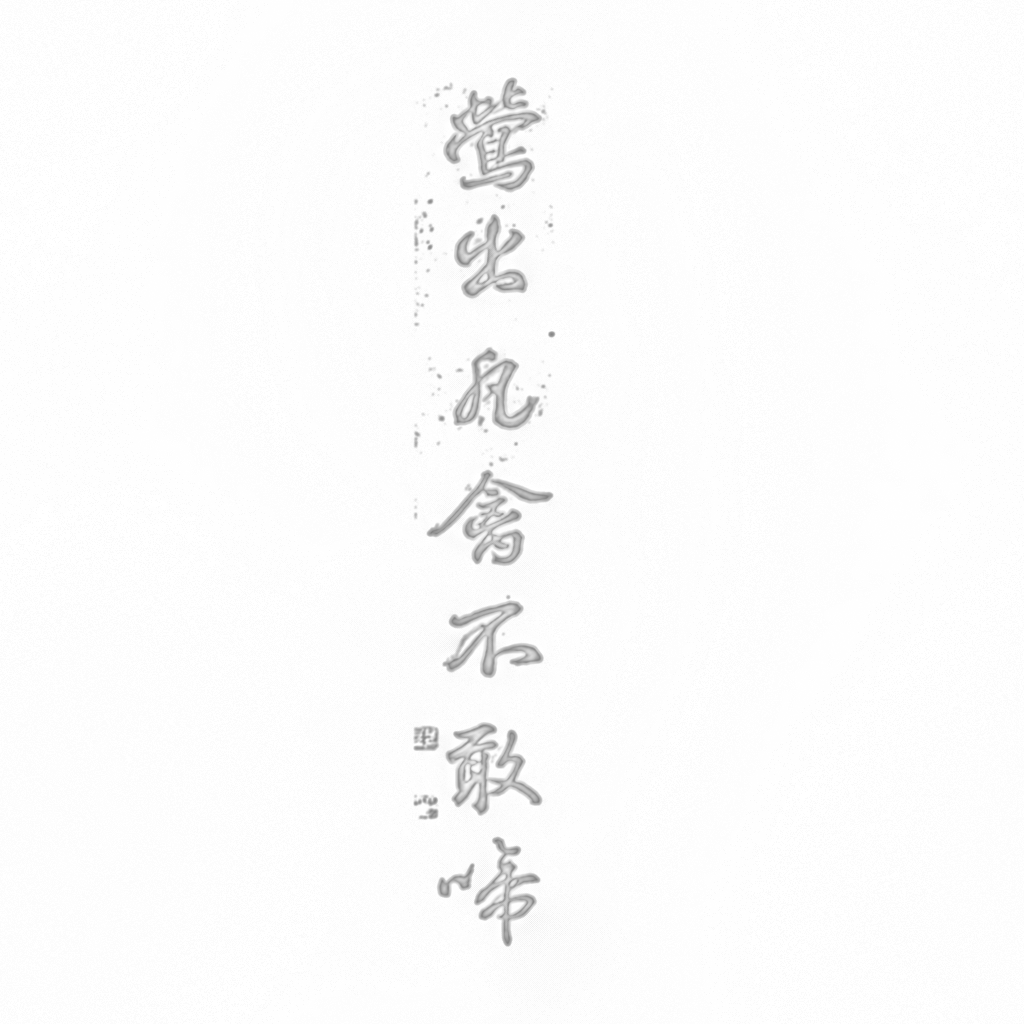 鶯出凡禽不敢啼